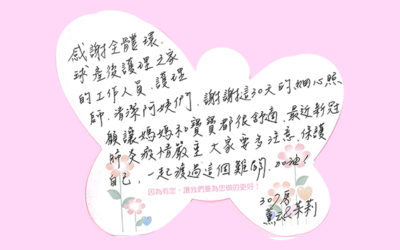 感謝全體 環.
球產後護理之家
的工作人員、護理
師、清潔阿姨們,謝謝這30天的細心照
顧讓媽媽和寶寶都很舒適,最近新冠
肺炎疫情嚴重大家要多注意、保護
自己,一起渡過這個難關,加油!
因為有您,讓我們能為您做的更好!
307房
茉莉